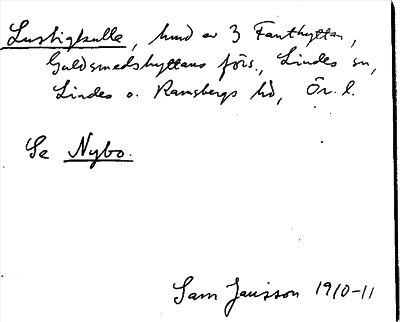 Lustigkulla, hmd av 3 Fanthyttan,
Guldsmedshyttans förs., Lindes sn,
Lindes o. Ramsbergs hd, Ör. l.
Se Nybo.
Sam Jansson 1910-11